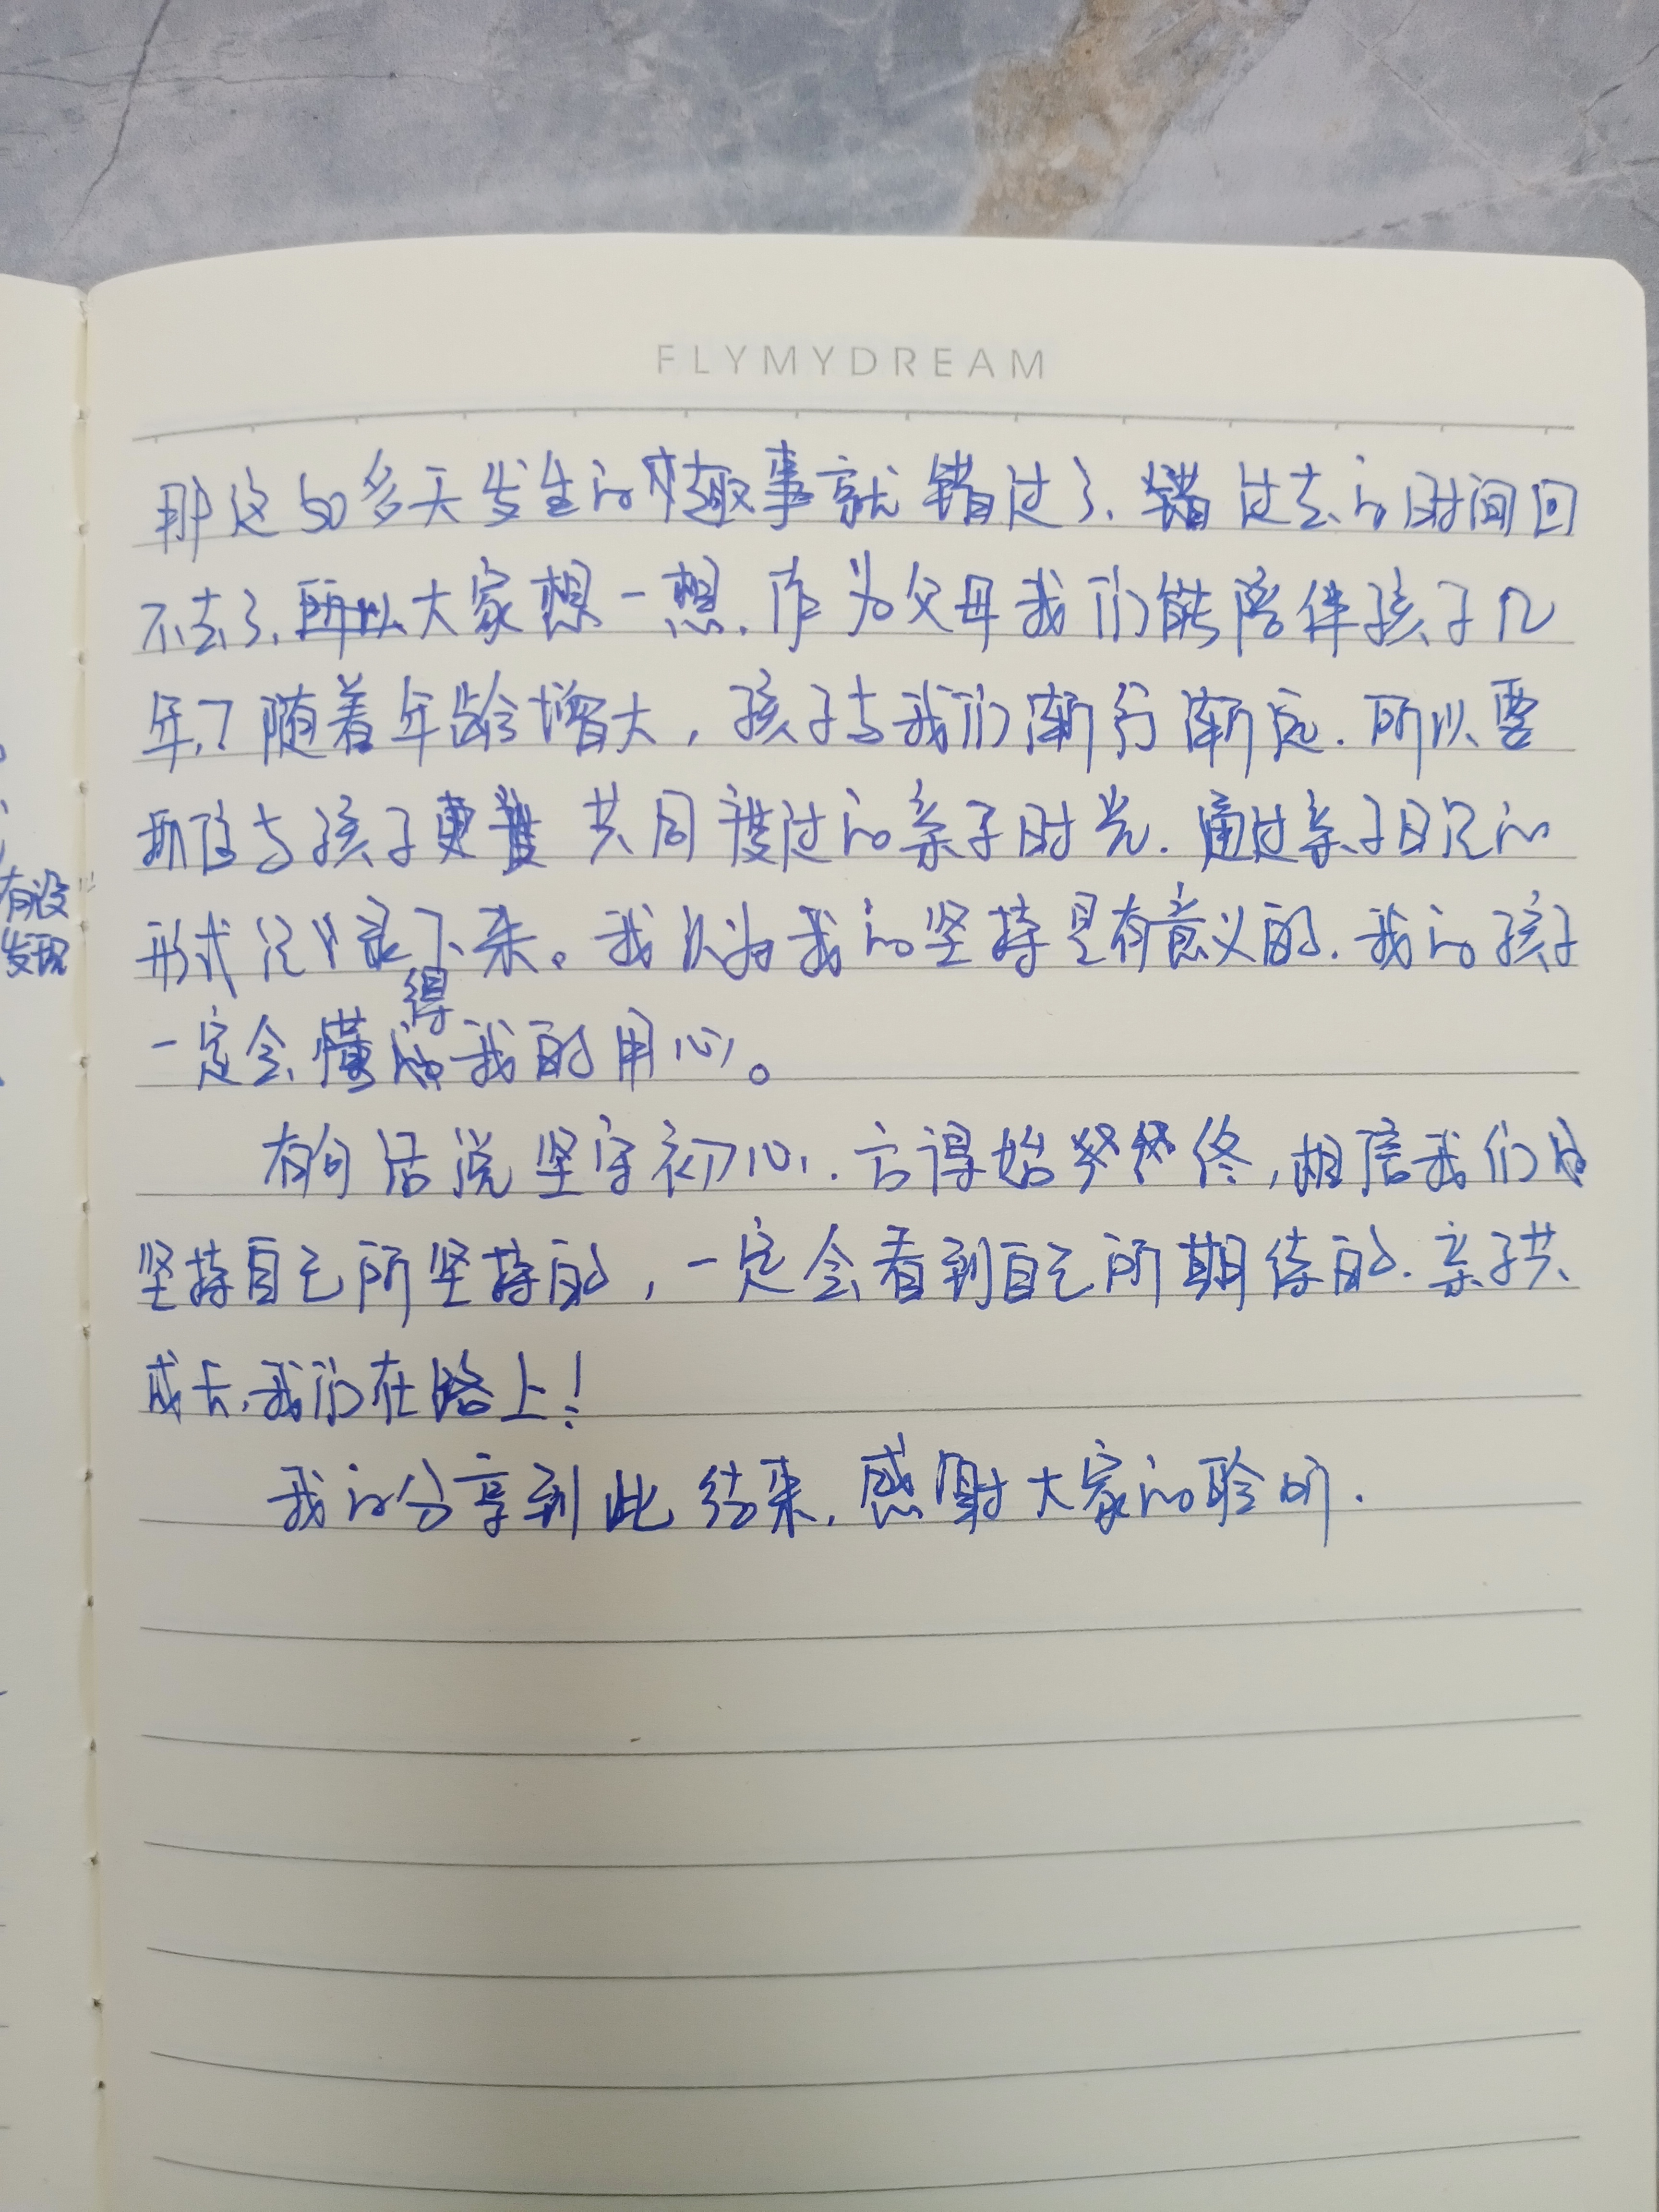 FLYMYDREAM
那这50多天发生的趣事就错过了.错过去的时间回
不去了.所以大家想一想.作为父母我们能陪伴孩子几
年?随着年龄增大,孩子与我们渐行渐远.所以要
抓住与孩子共同度过的亲子时光.通过亲子日记的
形式记录下来。我认为我的坚持是有意义的.我的孩子
一定会懂得我的用心。
有句话说坚守初心.方得始终,相信我们
坚持自己所坚持的,一定会看到自己所期待的.亲子共
成长,我们在路上!
我的分享到此结束.感谢大家的聆听.
有没
发现